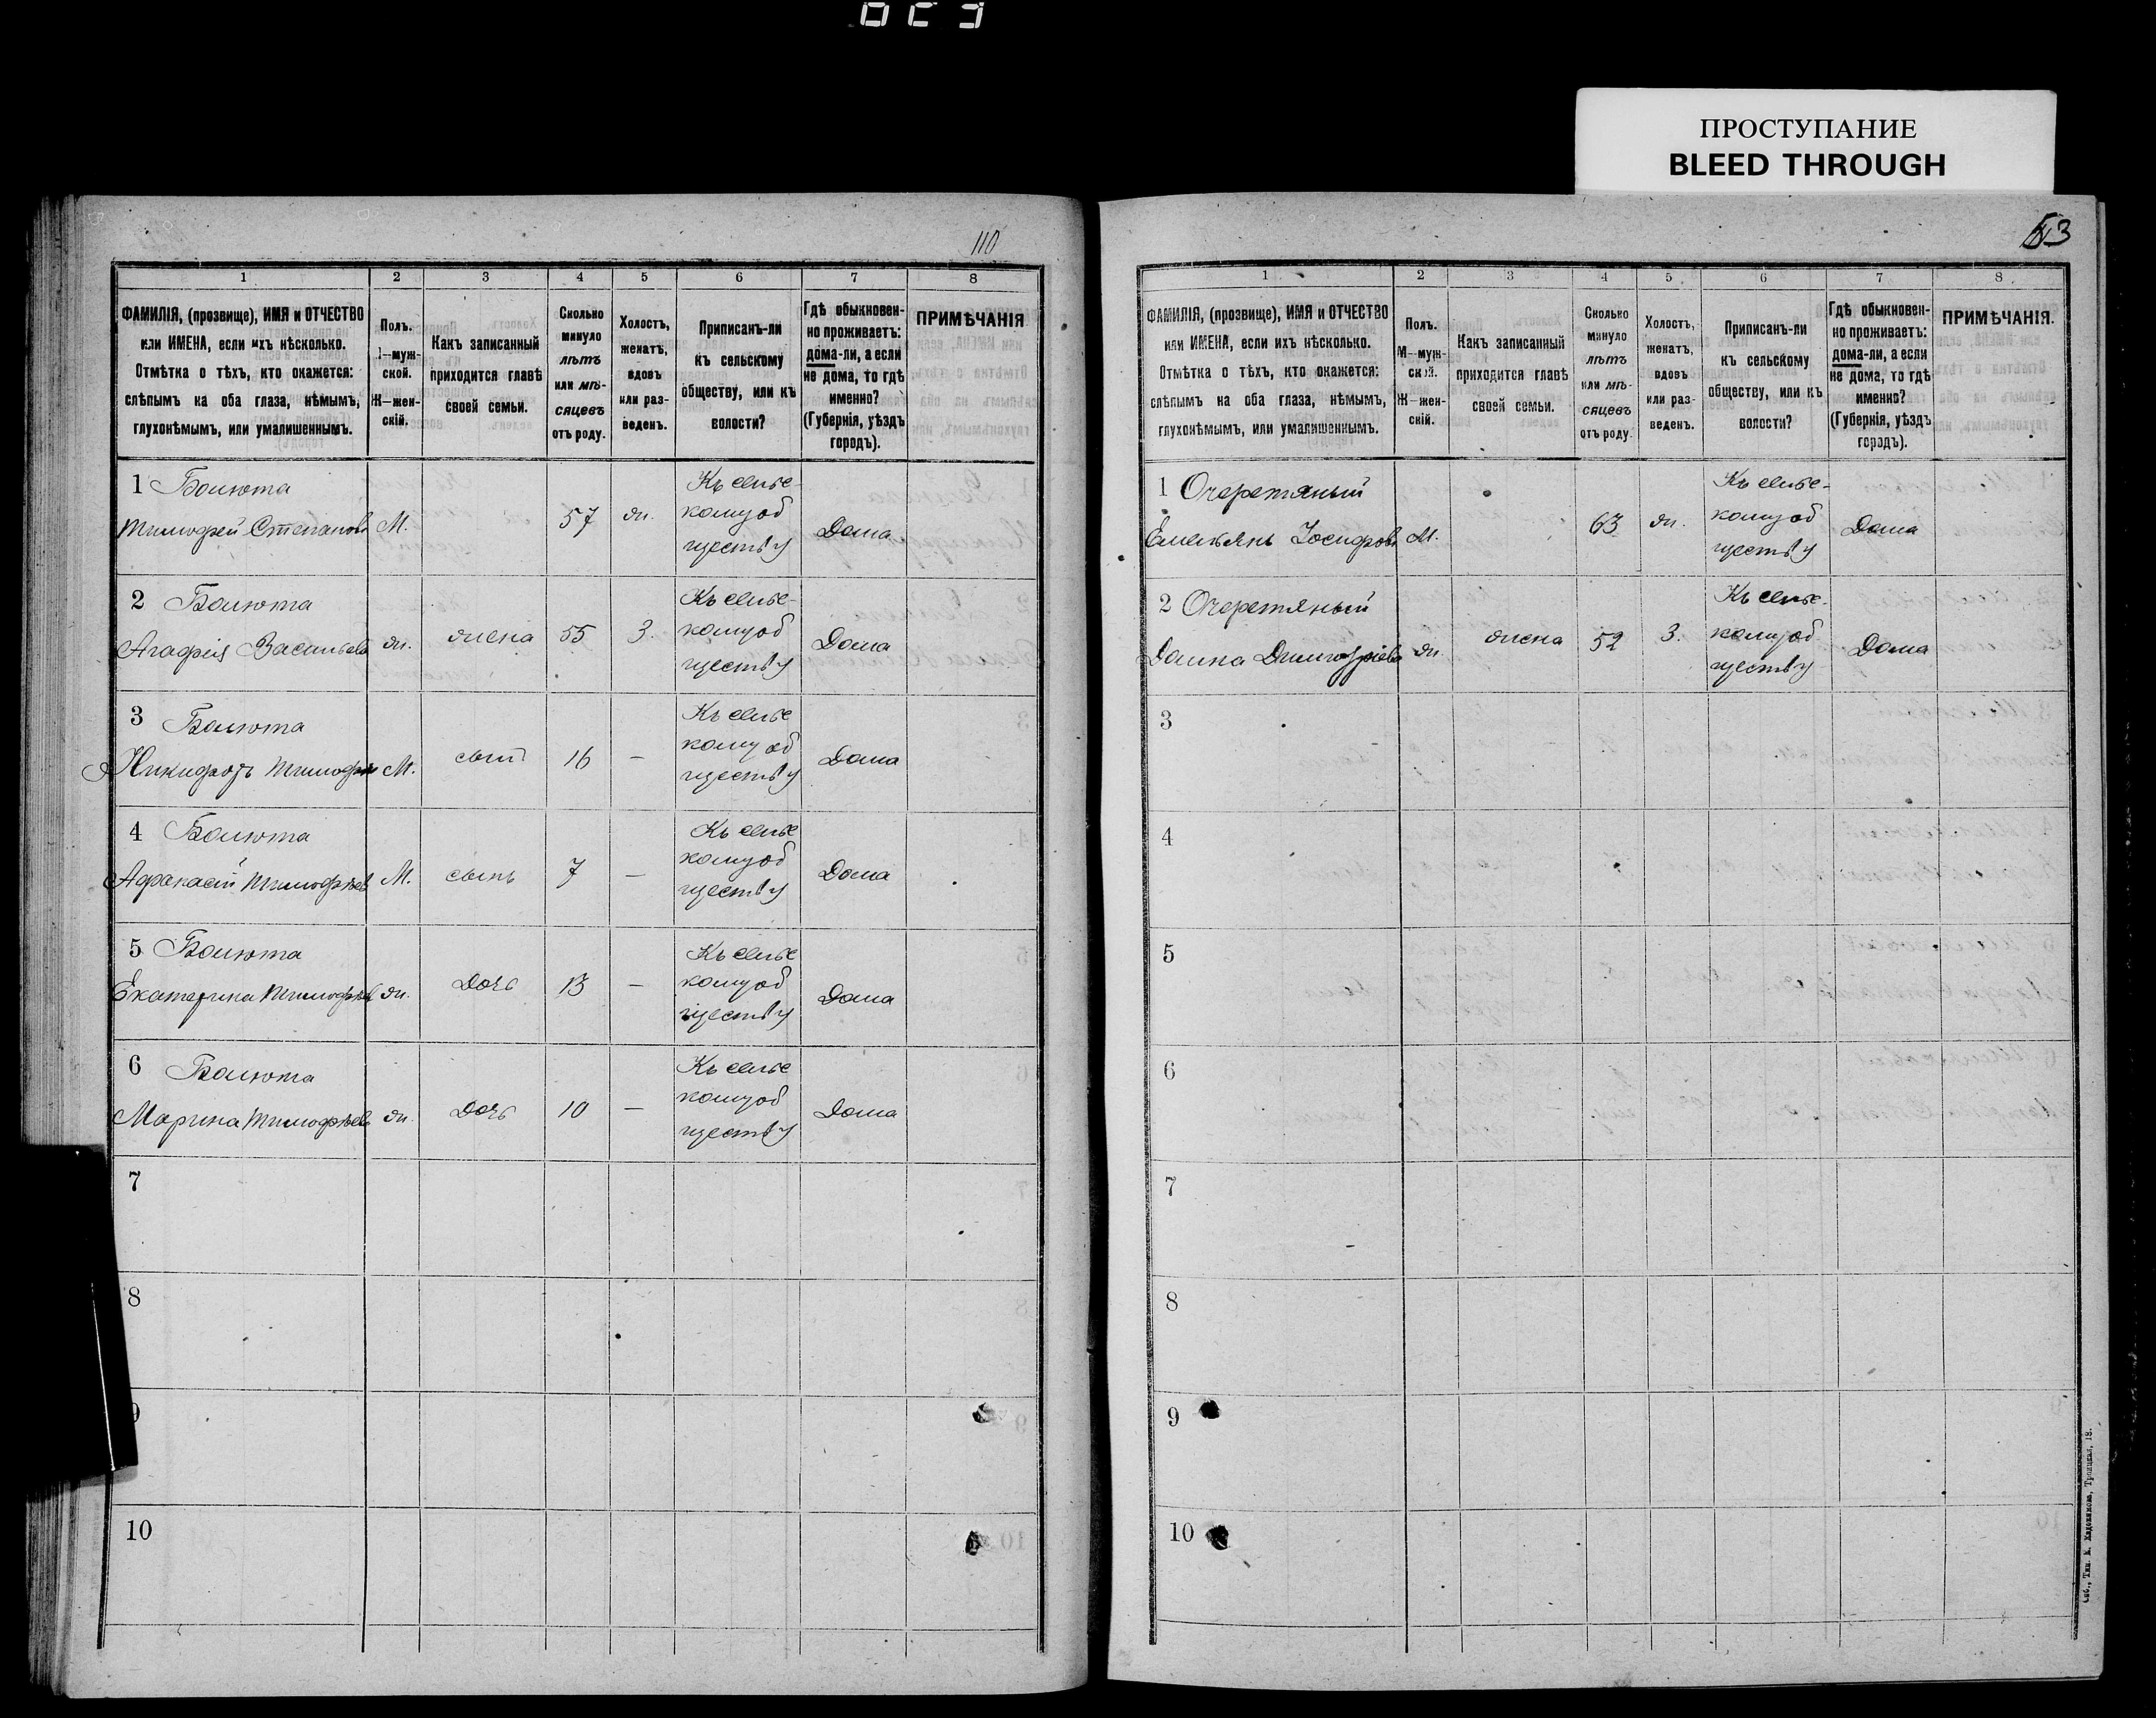 ПРОСТУПАНИЕ
BLEED THROUGH
110
1 2 3 4 5 6 7 8
ФАМИЛІЯ, (прозвище), ИМЯ и ОТЧЕСТВО
или ИМЕНА, если ихъ нѣсколько.
Отмѣтка о тѣхъ, кто окажется:
слѣпымъ на оба глаза, нѣмымъ,
глухонѣмымъ, или умалишеннымъ.
Полъ.
М—муж-
ской.
Ж—жен-
скій.
Какъ записанный
приходится главѣ
своей семьи.
Сколько
минуло
лѣтъ
или мѣ-
сяцевъ
отъ роду.
Холостъ,
женатъ,
вдовъ
или раз-
веденъ.
Приписанъ-ли
къ сельскому
обществу, или къ
волости?
Гдѣ обыкновен-
но проживаетъ:
дома-ли, а если
не дома, то гдѣ
именно?
(Губернія, уѣздъ
городъ).
ПРИМѢЧАНІЯ
1
Тимофей Степановъ М. 57 ж. Къ сельс-
кому об
ществу Дома
2
Агафія Васильева ж. жена 55 З. Къ сельс-
кому об
ществу Дома
3
Никифоръ Тимофѣев М. сынъ 16 — Къ сельс
кому об
ществу Дома
4
Афанасій Тимофѣев М. сынъ 7 — Къ сельс
кому об
ществу Дома
5
Екатерина Тимофѣев ж. Дочь 13 — Къ сельс
кому об
ществу Дома
6
Марина Тимофѣев ж. Дочь 10 — Къ сельс
кому об
ществу Дома
7
8
9
10
53
1 2 3 4 5 6 7 8
ФАМИЛІЯ, (прозвище), ИМЯ и ОТЧЕСТВО
или ИМЕНА, если ихъ нѣсколько.
Отмѣтка о тѣхъ, кто окажется:
слѣпымъ на оба глаза, нѣмымъ,
глухонѣмымъ, или умалишеннымъ.
Полъ.
М—муж-
ской.
Ж—жен-
скій.
Какъ записанный
приходится главѣ
своей семьи.
Сколько
минуло
лѣтъ
или мѣ-
сяцевъ
отъ роду.
Холостъ,
женатъ,
вдовъ
или раз-
веденъ.
Приписанъ-ли
къ сельскому
обществу, или къ
волости?
Гдѣ обыкновен-
но проживаетъ:
дома-ли, а если
не дома, то гдѣ
именно?
(Губернія, уѣздъ
городъ).
ПРИМѢЧАНІЯ.
1 Очеретяный
Емельянъ Іосифовъ М. 63 ж. Къ сельс-
кому об
ществу Дома
2 Очеретяный
Домна Дмитріева ж. жена 52 З. Къ сельс-
кому об
ществу Дома
3
4
5
6
7
8
9
10